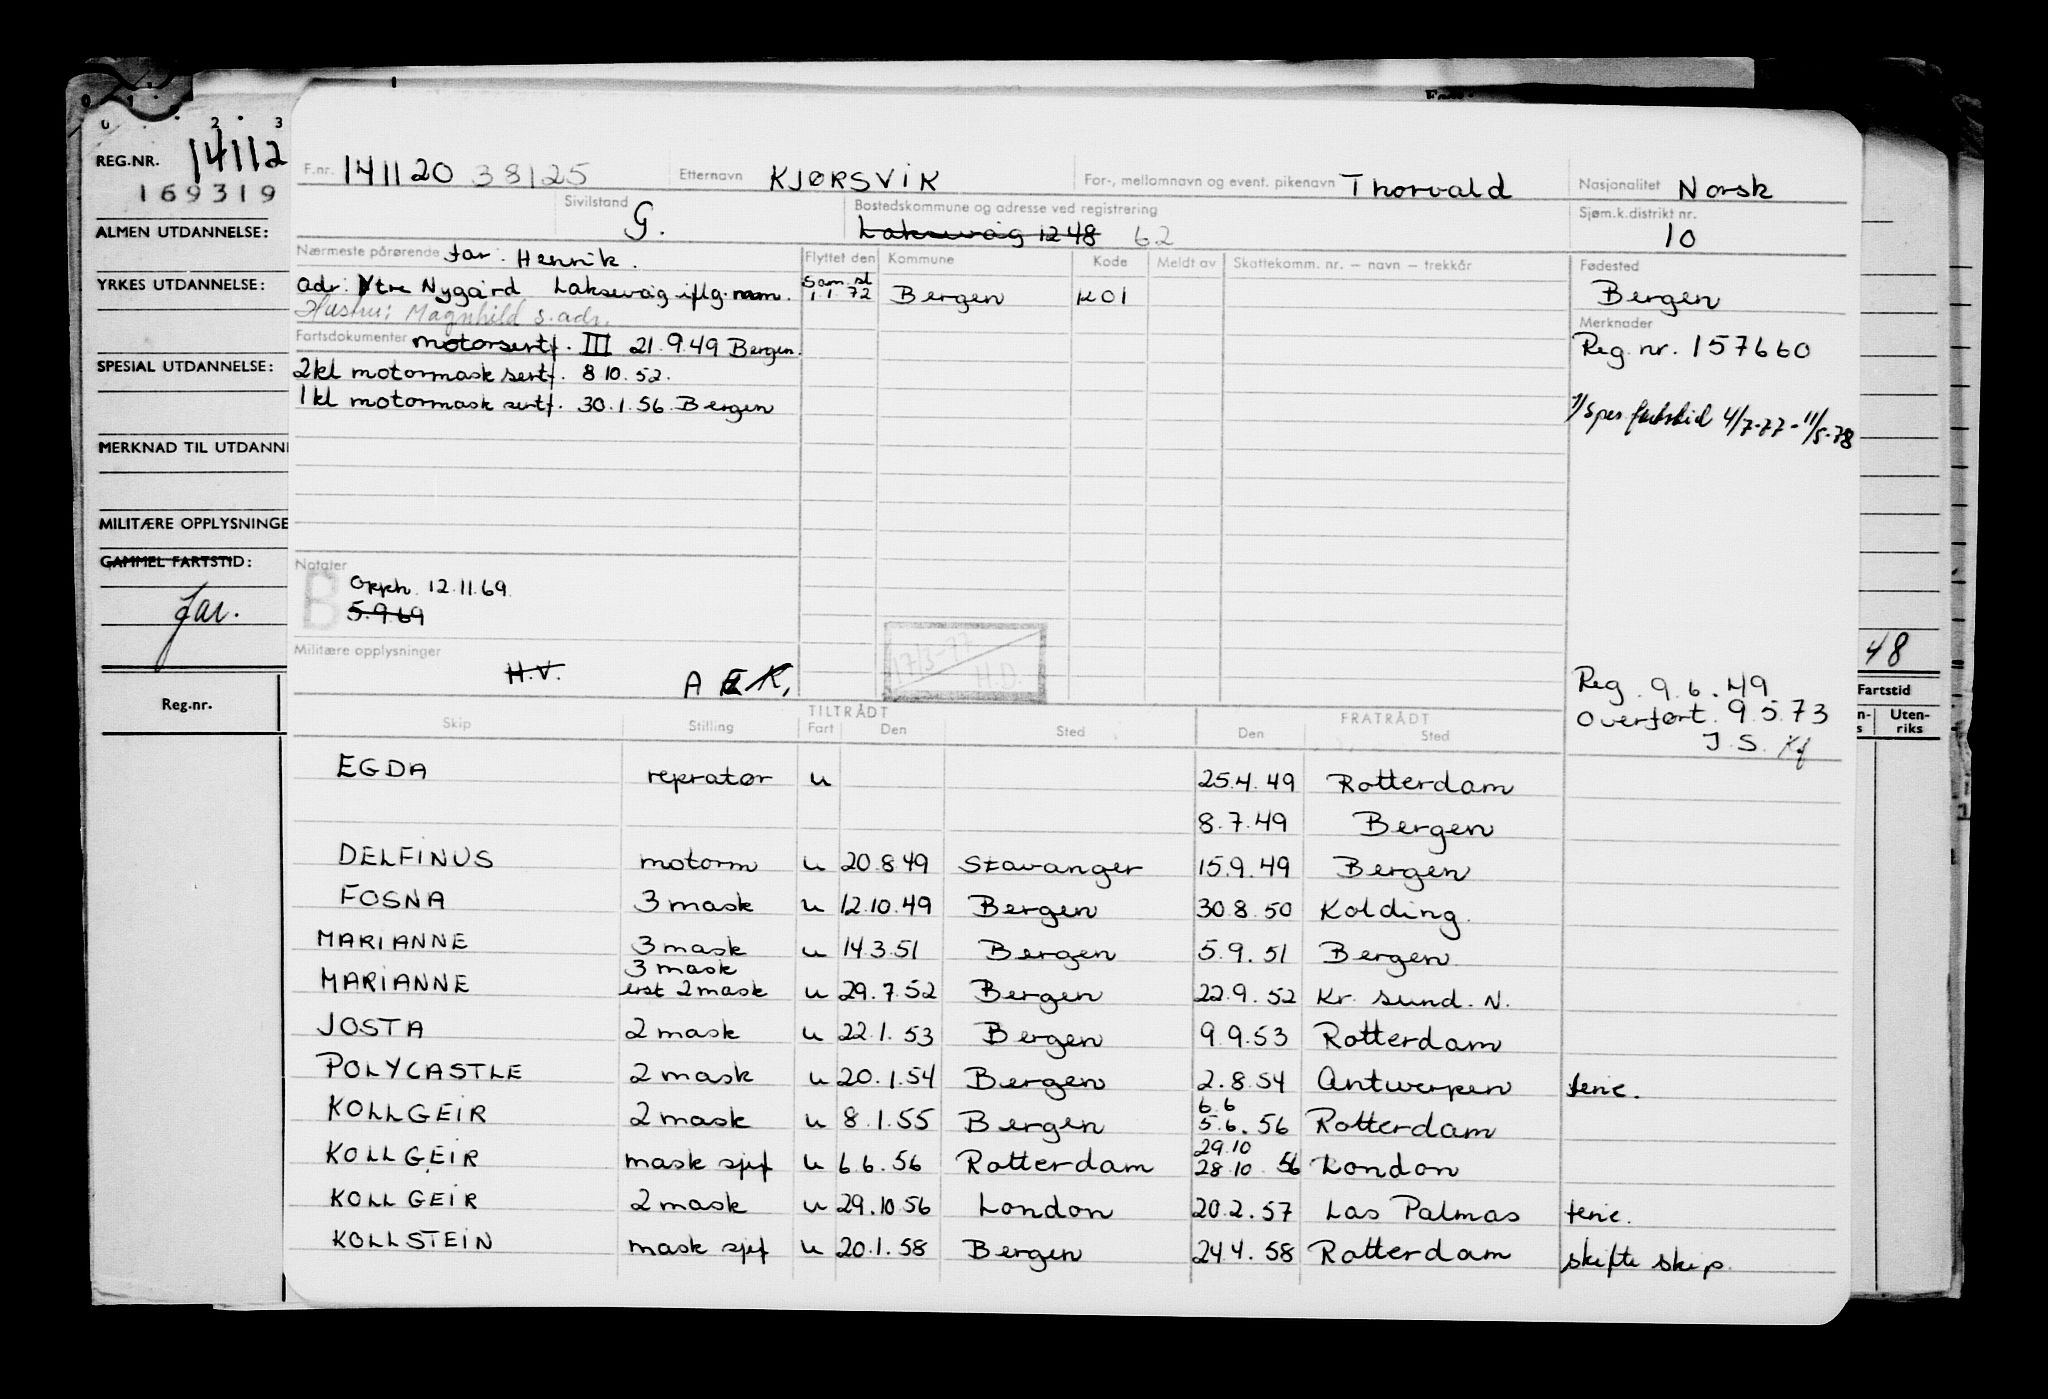 0 . 2 . 3
REG.NR. 14112
169319
ALMEN UTDANNELSE:
YRKES UTDANNELSE:
SPESIAL UTDANNELSE:
MERKNAD TIL UTDANNE
MILITÆRE OPPLYSNINGE
GAMMEL FARTSTID:
far.
Reg.nr.
F.nr. 141120 38125 Etternavn KJØRSVIK For-, mellomnavn og event. pikenavn Thorvald Nasjonalitet Norsk
Sivilstand G. Bostedskommune og adresse ved registrering Laksevåg 1248 62 Sjøm.k.distrikt nr. 10
Nærmeste pårørende far: Henrik. Flyttet den Kommune Kode Meldt av Skattekomm. nr. – navn – trekkår Fødested
adr: Ytre Nygård Laksevåg iflg. mm. Sam.sl 1.1.72 Bergen 1201 Bergen
Hustru: Magnhild s. adr. Merknader
Fartsdokumenter motorsertf. III 21.9.49 Bergen. Reg. nr. 157660
2kl motormask sertf. 8 10. 52.
1kl motormask sertf. 30.1.56 Bergen
spes fartstid 4/7-77 - 11/5-78
Notater
B Opph. 12.11.69.
5.9.69
Militære opplysninger
H.V. A K.
17/3-77 H.D.
Reg. 9.6.49
Overført. 9.5.73
J.S. Kf
48
Fartstid
Uten-
riks
TILTRÅDT FRATRÅDT
Skip Stilling Fart Den Sted Den Sted
EGDA repratør u 25.4.49 Rotterdam
8.7.49 Bergen
DELFINUS motorm u 20.8.49 Stavanger 15.9.49 Bergen
FOSNA 3 mask u 12.10.49 Bergen 30.8.50 Kolding.
MARIANNE 3 mask u 14.3.51 Bergen 5.9.51 Bergen
3 mask
MARIANNE erst 2 mask u 29.7.52 Bergen 22.9.52 Kr. sund. N.
JOSTA 2 mask u 22.1.53 Bergen 9.9.53 Rotterdam
POLYCASTLE 2 mask u 20.1.54 Bergen 2.8.54 Antwerpen ferie.
6.6
KOLLGEIR 2 mask u 8.1.55 Bergen 5.6.56 Rotterdam
29.10
KOLLGEIR mask sjef u 6.6.56 Rotterdam 28.10 56 London
KOLLGEIR 2 mask u 29.10.56 London 20.2.57 Las Palmas ferie.
KOLLSTEIN mask sjef u 20.1.58 Bergen 24.4.58 Rotterdam skifte skip.